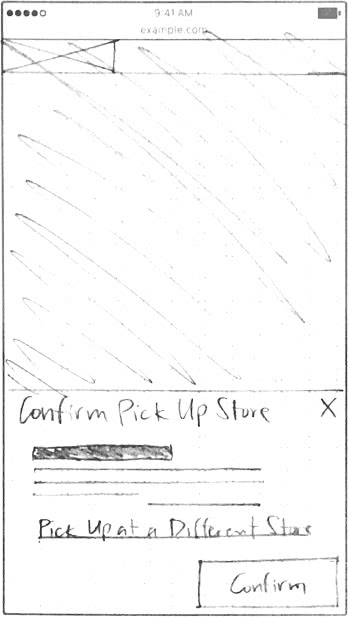 9:41 AM
example.com
Confirm Pick Up Store X
Pick Up at a Different Store
Confirm